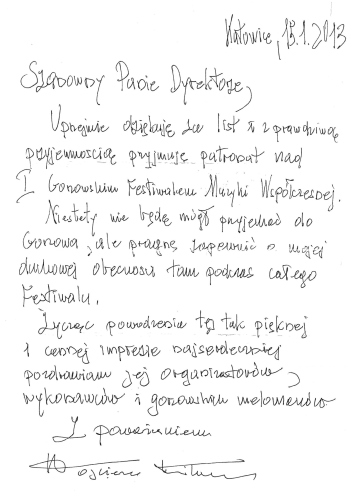 Katowice, 13.1.2013
Szanowny Panie Dyrektorze,
Uprzejmie dziękuję za list i z prawdziwą
przyjemnością przyjmuję patronat nad
I Gorzowskim Festiwalem Muzyki Współczesnej.
Niestety nie będę mógł przyjechać do
Gorzowa, ale pragnę zapewnić o mojej
duchowej obecności tam podczas całego
Festiwalu.
Życząc powodzenia tej tak pięknej
i cennej imprezie najserdeczniej
pozdrawiam jej organizatorów,
wykonawców i gorzowskich melomanów
Z poważaniem
Wojciech Kilar